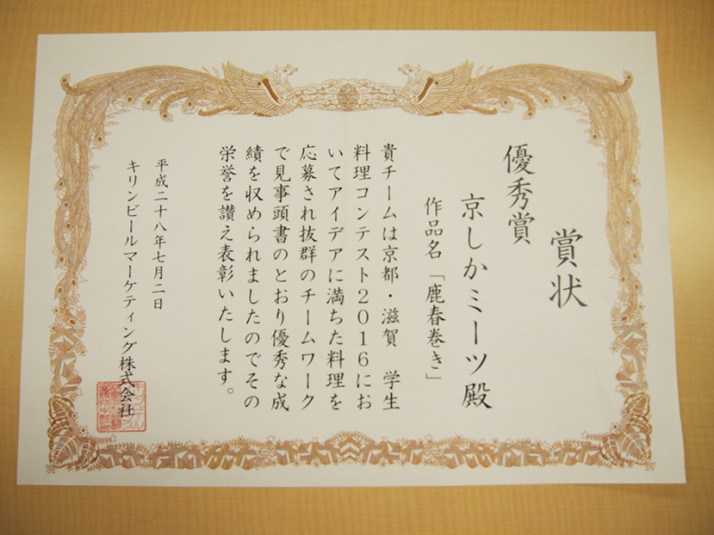 賞状
優秀賞
京しかミーツ殿
作品名「鹿春巻き」
貴チームは京都・滋賀　学生
料理コンテスト2016にお
いてアイデアに満ちた料理を
応募され抜群のチームワーク
で見事頭書のとおり優秀な成
績を収められましたのでその
栄誉を讃え表彰いたします。
平成二十八年七月二日
キリンビールマーケティング株式会社